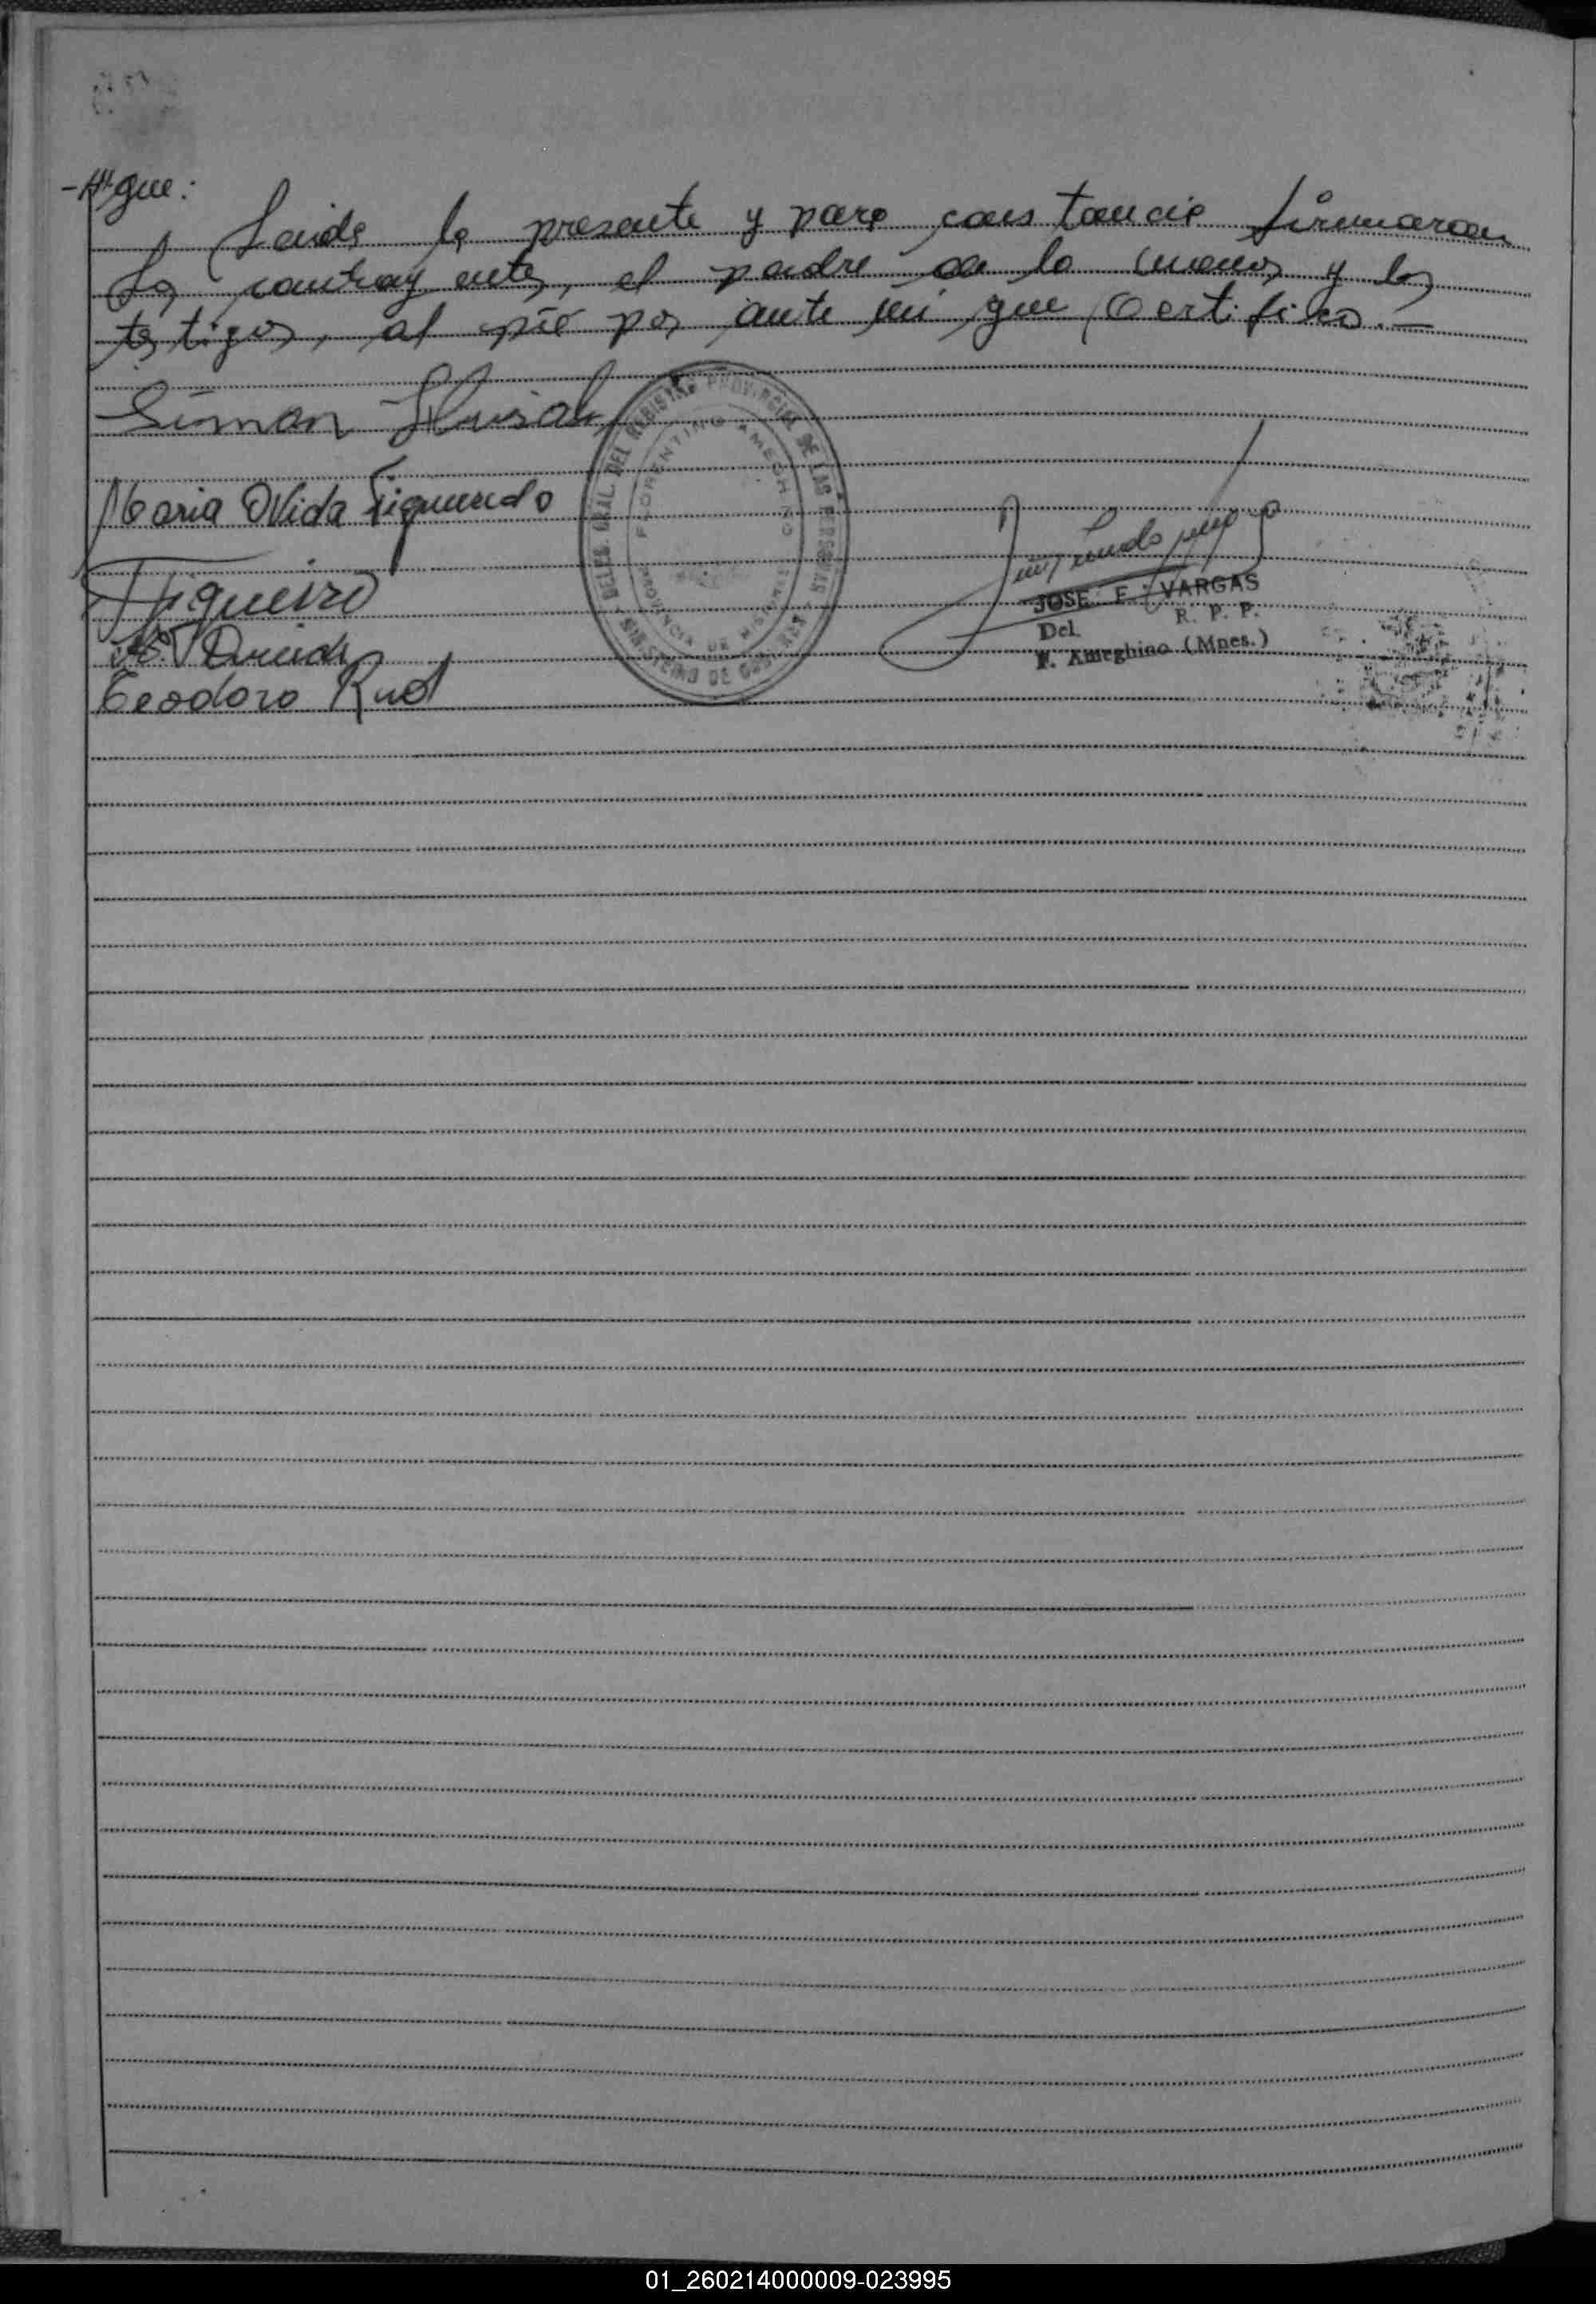 -//- que:
Leida la presente y para constancia firmaron
los contrayentes, el padre de la menor y los
testigos, al pié por ante mi que Certifico.—
Siman
Maria Ovida Figueredo
Figueiro
Teodoro Rud
DELEG. GRAL. DEL REGISTRO PROVINCIAL DE LAS PERSONAS
MINISTERIO DE GOBIERNO
FLORENTINO AMEGHINO
PROVINCIA DE MISIONES
JOSE E. VARGAS
Del. R. P. P.
F. Ameghino (Mnes.)
01_260214000009-023995